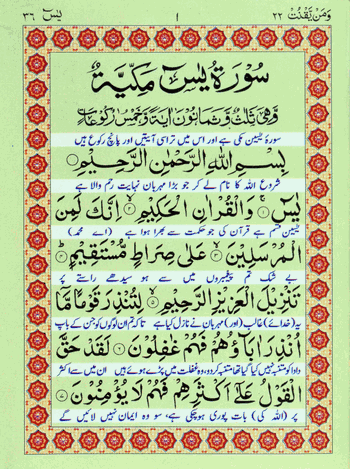 ومن یقنت ۲۲
۱
یٰسٓ ۳۶
سُوْرَةُ يٰسٓ مَكِّيَّةٌ
وَهِيَ ثَلٰثٌ وَّثَمَانُوْنَ اٰيَةً وَّخَمْسُ رُكُوْعَاتٍ
سورۂ یٰسین مکی ہے اور اس میں تراسی آیتیں اور پانچ رکوع ہیں
بِسْمِ اللهِ الرَّحْمٰنِ الرَّحِيْمِ
شروع اللہ کا نام لے کر جو بڑا مہربان نہایت رحم والا ہے
يٰسٓ ۝۱ وَالْقُرْاٰنِ الْحَكِيْمِ ۝۲ اِنَّكَ لَمِنَ
یٰسین قسم ہے قرآن کی جو حکمت سے بھرا ہوا ہے (اے محمد)
الْمُرْسَلِيْنَ ۝۳ عَلٰى صِرَاطٍ مُّسْتَقِيْمٍ ۝۴
بے شک تم پیغمبروں میں سے ہو سیدھے راستے پر
تَنْزِيْلَ الْعَزِيْزِ الرَّحِيْمِ ۝۵ لِتُنْذِرَ قَوْمًا مَّآ
یہ (خدائے) غالب (اور) مہربان نے نازل کیا ہے تاکہ تم ان لوگوں کو جن کے باپ
اُنْذِرَ اٰبَآؤُهُمْ فَهُمْ غٰفِلُوْنَ ۝۶ لَقَدْ حَقَّ
دادا کو متنبہ نہیں کیا گیا تھا متنبہ کردو، وہ غفلت میں پڑے ہوئے ہیں ان میں سے اکثر
الْقَوْلُ عَلٰٓى اَكْثَرِهِمْ فَهُمْ لَا يُؤْمِنُوْنَ ۝۷
پر (اللہ کی) بات پوری ہوچکی ہے، سو وہ ایمان نہیں لائیں گے